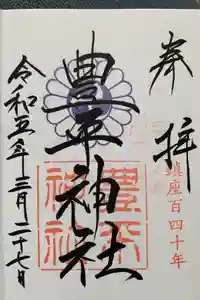 奉拝
鎮座百四十年
豊平神社
豊平神社
令和五年三月二十七日